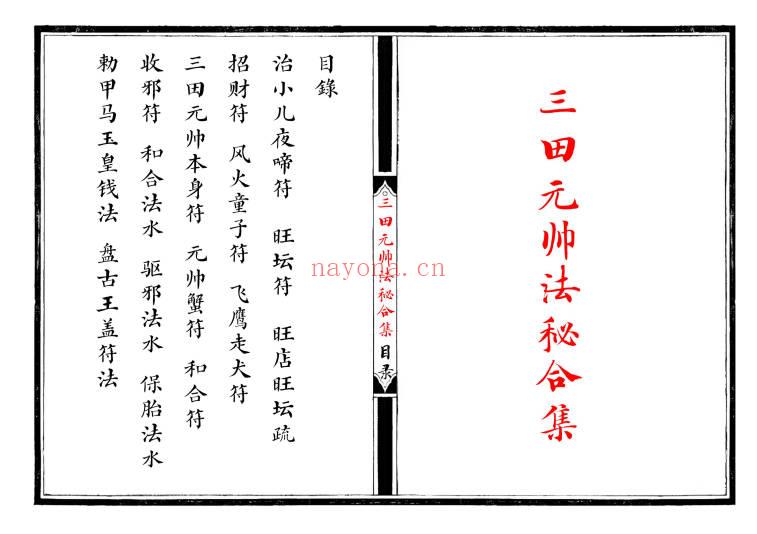 三田元帅法秘合集
三田元帅法秘合集 目录
目錄
治小儿夜啼符 旺坛符 旺店旺坛疏
招财符 风火童子符 飞鹰走犬符
三田元帅本身符 元帅蟹符 和合符
收邪符 和合法水 驱邪法水 保胎法水
勅甲马玉皇钱法 盘古王盖符法
nayona.cn